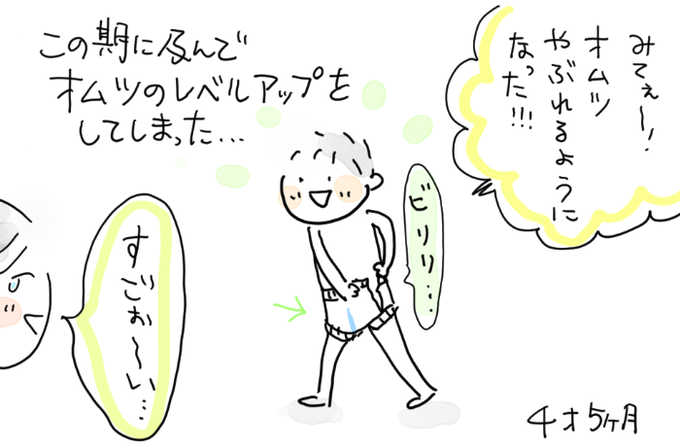 みてぇ～!
オムツ
やぶれるように
なった!!!
この期に及んで
オムツのレベルアップを
してしまった…
ビリリ…
すごぉ～い…
4才5ヶ月